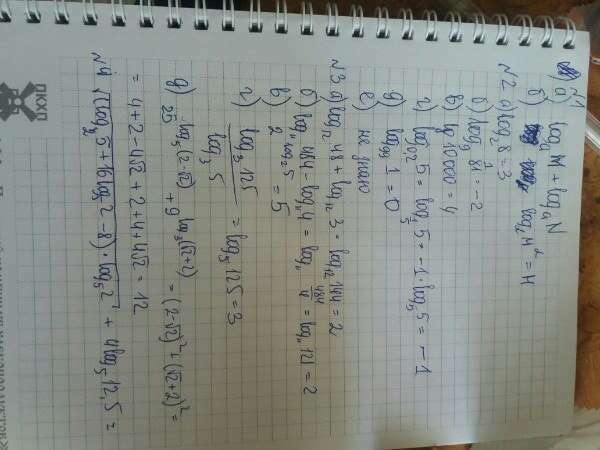 №1
а) log_a M + log_a N
б) log_a M^α = H
№2 а) log_2 8 = 3
б) log_9 81 = -2
в) lg 10000 = 4
г) log_0,2 5 = log_1/5 5 = -1·log_5 5 = -1
д) log_99 1 = 0
е) не знаю
№3 а) log_12 48 + log_12 3 = log_12 144 = 2
б) log_11 484 - log_11 4 = log_11 484/4 = log_11 121 = 2
в) 2^(log_2 5) = 5
г) log_3 125 / log_3 5 = log_5 125 = 3
д) 25^(log_5(2-√2)) + 9^(log_3(√2+2)) = (2-√2)² + (√2+2)² =
= 4+2-4√2+2+4+4√2 = 12
№4 √((log_2^4 5 + 16 log_5^4 2 - 8)·log_5^2 2) + 4log_5 12,5 =
ПКХП